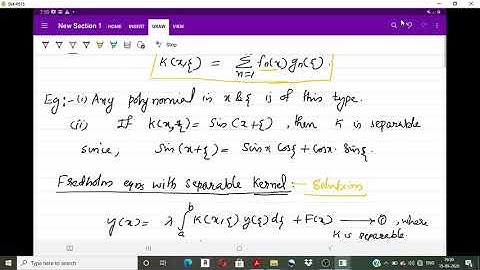 SM-P615
7:59
New Section 1
HOME
INSERT
DRAW
VIEW
Stop
K(x,ξ) = Σ n=1 fn(x) gn(ξ).
Eg:- (i) Any polynomial in x & ξ is of this type.
(ii) If K(x,ξ) = Sin(x+ξ), then K is separable
since, Sin(x+ξ) = Sinx Cosξ + Cosx. Sinξ.
Fredholm eqns with separable Kernel:- Solution
y(x) = λ ∫ab K(x,ξ) y(ξ) dξ + F(x) → ①, where
K is separable.
Type here to search